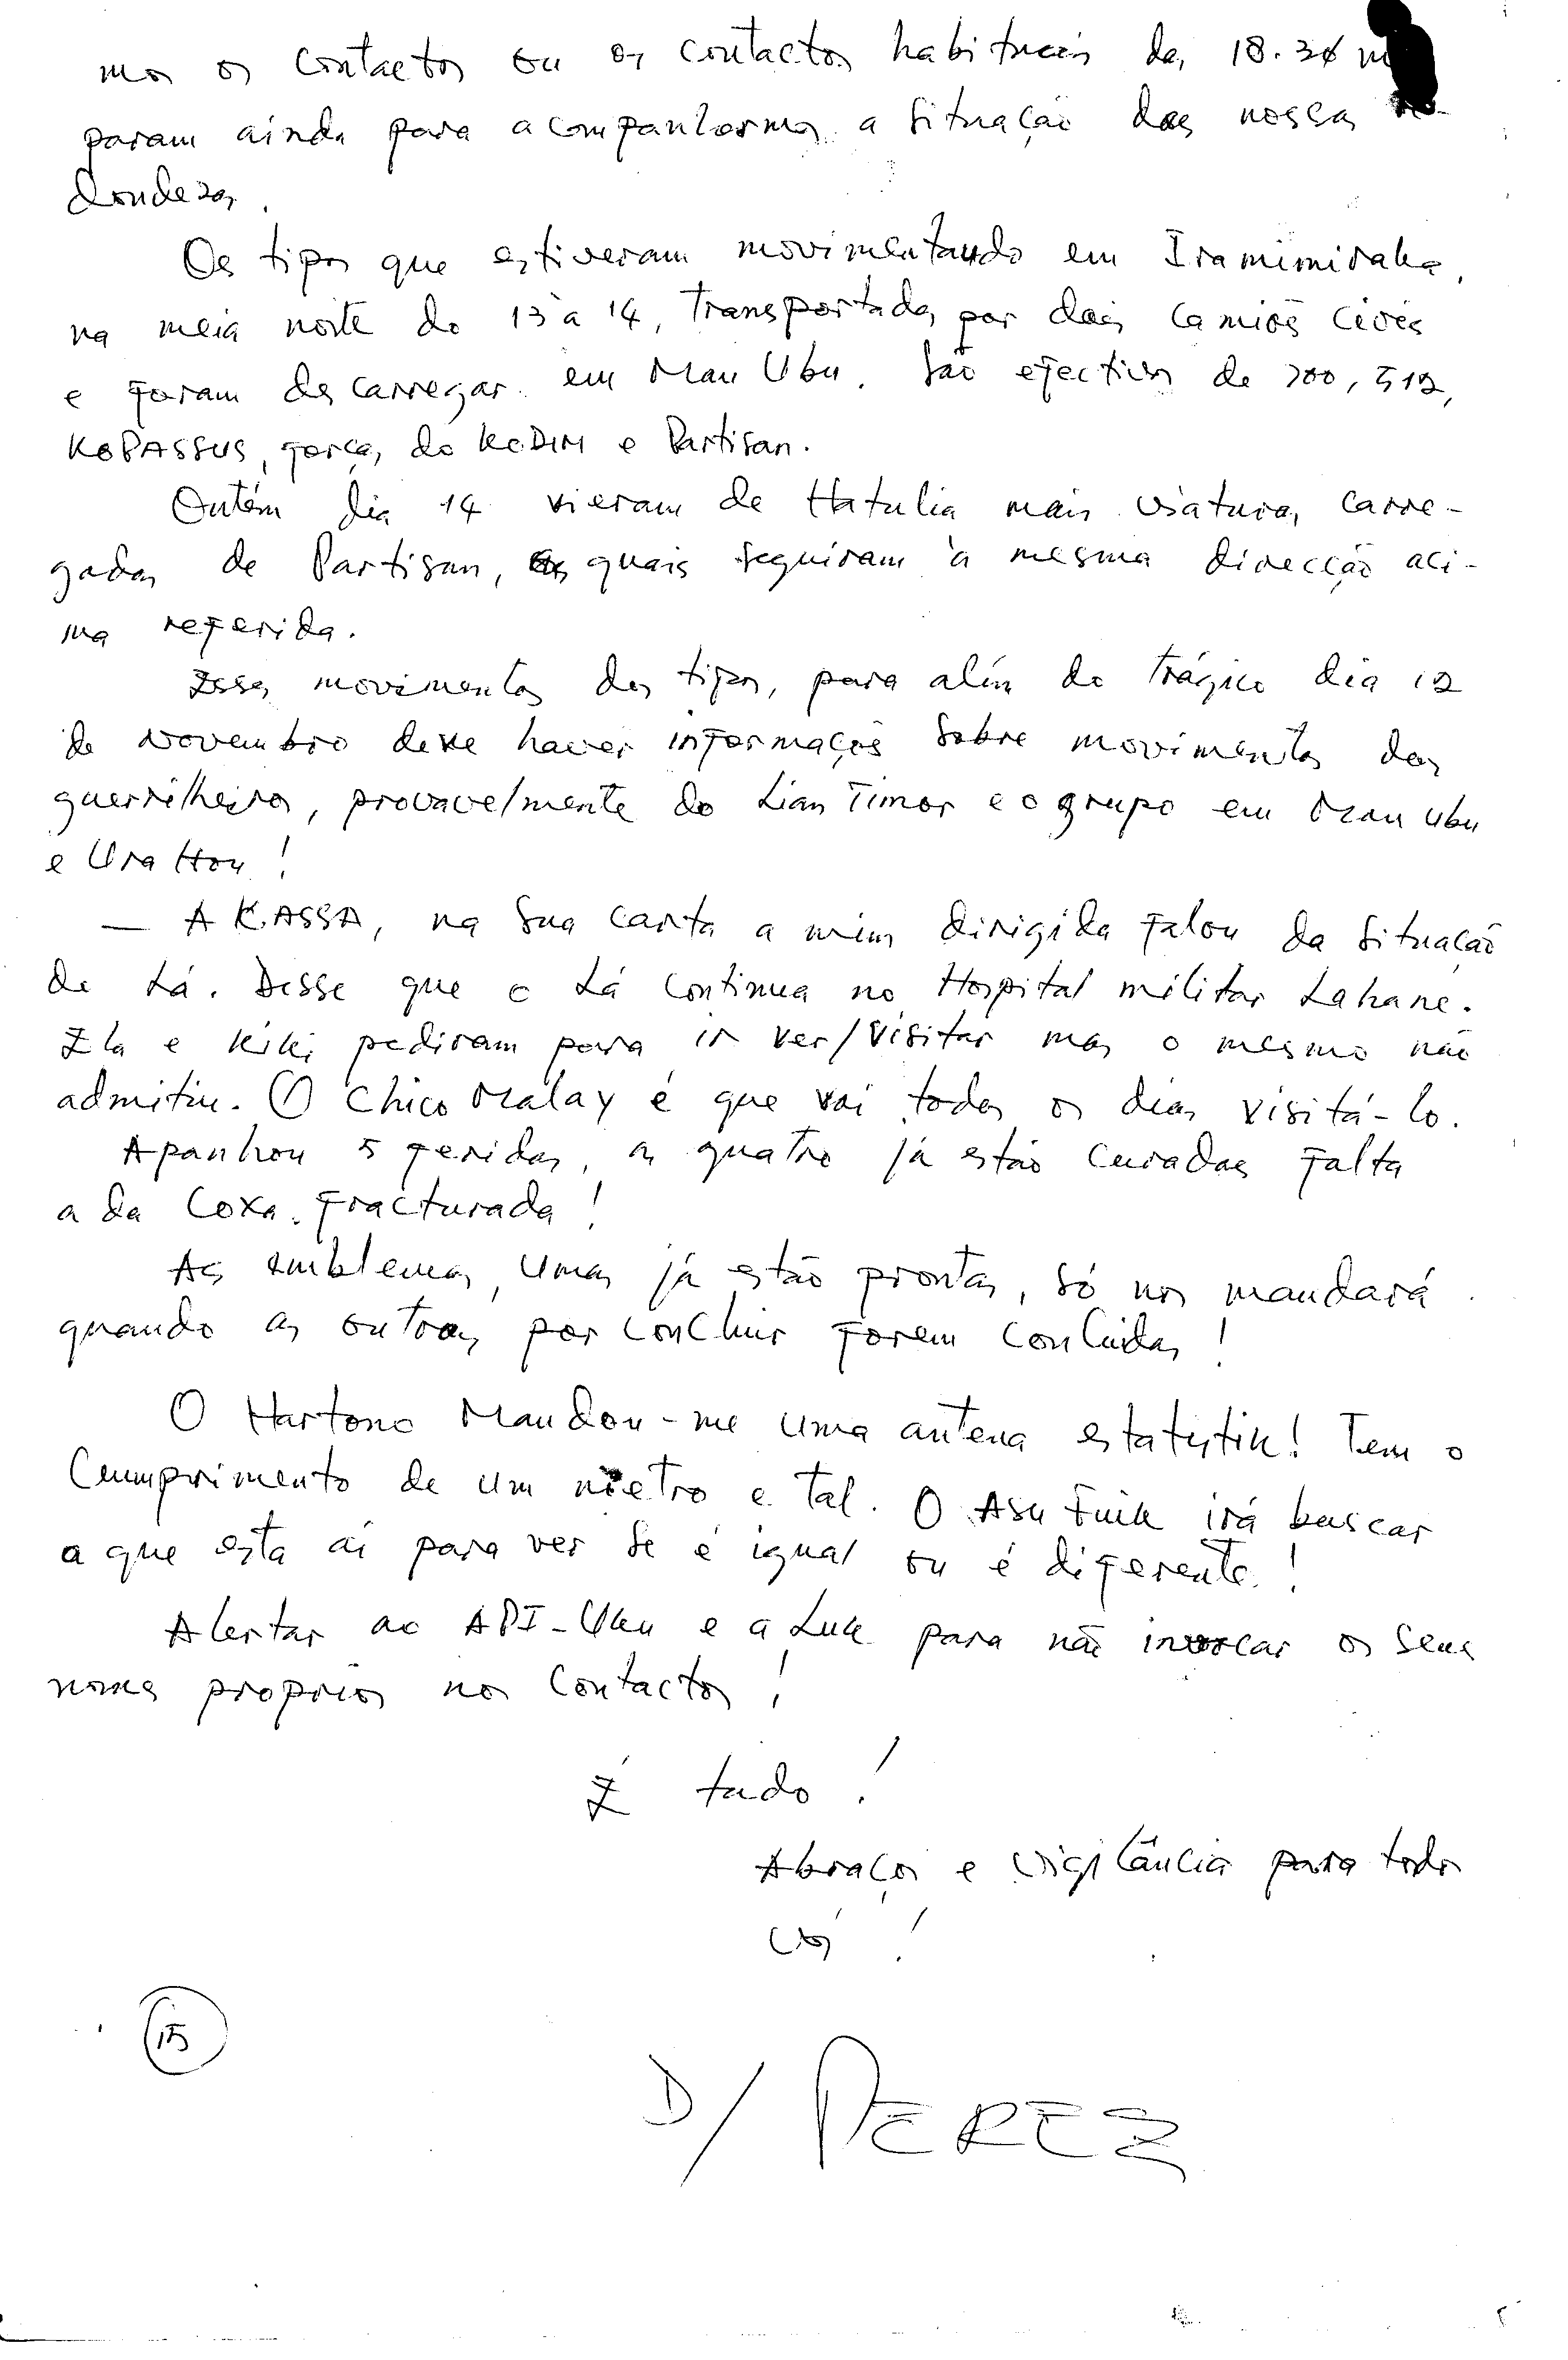 mos os contactos ou os contactos habituais das 18.30
param ainda para acompanharmos a situação das nossas re-
dondezas.
Os tipos que estiveram movimentando em Iramimiraba,
na meia noite do 13 a 14, transportados por dois camiões civis
e foram descarregar em Mau Ubu. São efectivos de 700, 512,
KOPASSUS, forças do KODIM e Partisan.
Ontém dia 14 vieram de Hatulia mais viaturas carre-
gadas de Partisan, as quais seguiram à mesma direcção aci-
ma referida.
Esses movimentos dos tipos, para além do trágico dia 12
de Novembro deve haver informações sobre movimentos dos
guerrilheiros, provavelmente do Lian Timor e o grupo em Mau Ubu
e Ura Hou!
— A K.ASSA, na sua carta a mim dirigida falou da situação
de Lá. Disse que o Lá continua no Hospital militar Lahane.
Ela e Kiki pediram para ir ver/visitar mas o mesmo não
admitiu. O Chico Malay é que vai todos os dias visitá-lo.
Apanhou 5 feridas, as quatro já estão curadas falta
a da coxa fracturada!
As emblemas, umas já estão prontas, só nos mandará
quando as outras por concluir forem concluidas!
O Hartono Mandou-me uma antena estatystik! Tem o
Cumprimento de um metro e tal. O Asu Fuik irá buscar
a que está aí para ver se é igual ou é diferente!
Alertar ao API-Ubu e a Luk para não invocar os seus
nomes proprios nos contactos!
É tudo!
Abraços e vigilância para todos
vós!
15
D/ PEREZ